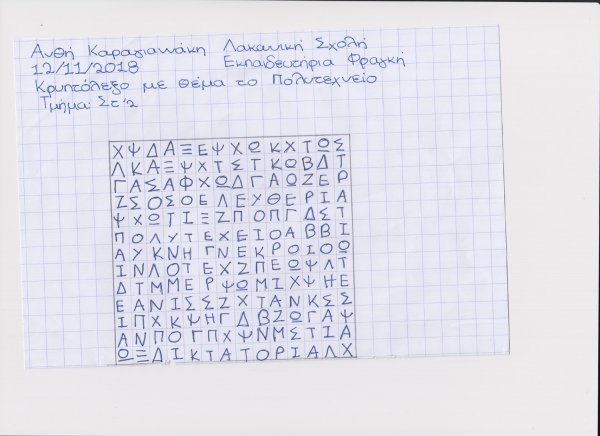 Ανθή Καραγιαννάκη Λακανική Σχολή
12/11/2018 Εκπαιδευτήρια Φραγκή
Κρυπτόλεξο με θέμα το Πολυτεχνείο
Τμήμα: Στ'2
Χ Ψ Δ Α Ξ Ε Ψ Χ Ω Κ Χ Τ Ω Σ
Λ Κ Α Ξ Ψ Χ Τ Σ Τ Κ Ο Β Δ Τ
Γ Α Σ Α Φ Χ Ω Δ Γ Α Ω Ζ Ε Ρ
Ζ Σ Ο Σ Ο Ε Λ Ε Υ Θ Ε Ρ Ι Α
Ψ Χ Ω Τ Ι Ξ Ζ Π Ο Π Γ Δ Σ Τ
Π Ο Λ Υ Τ Ε Χ Ε Ι Ο Α Β Β Ι
Α Υ Κ Ν Η Γ Ν Ε Κ Ρ Ο Ι Ο Ω
Ι Ν Λ Ο Τ Ε Χ Ζ Π Ε Ω Ψ Λ Τ
Δ Τ Μ Μ Ε Ρ Ψ Ω Μ Ι Χ Ψ Η Ε
Ε Α Ν Ι Σ Σ Ζ Χ Τ Α Ν Κ Σ Σ
Ι Π Χ Κ Ψ Η Γ Δ Β Ζ Ω Γ Α Ψ
Α Ν Π Ο Γ Π Χ Ψ Ν Μ Σ Τ Ι Α
Ω Ξ Δ Ι Κ Τ Α Τ Ο Ρ Ι Α Λ Χ